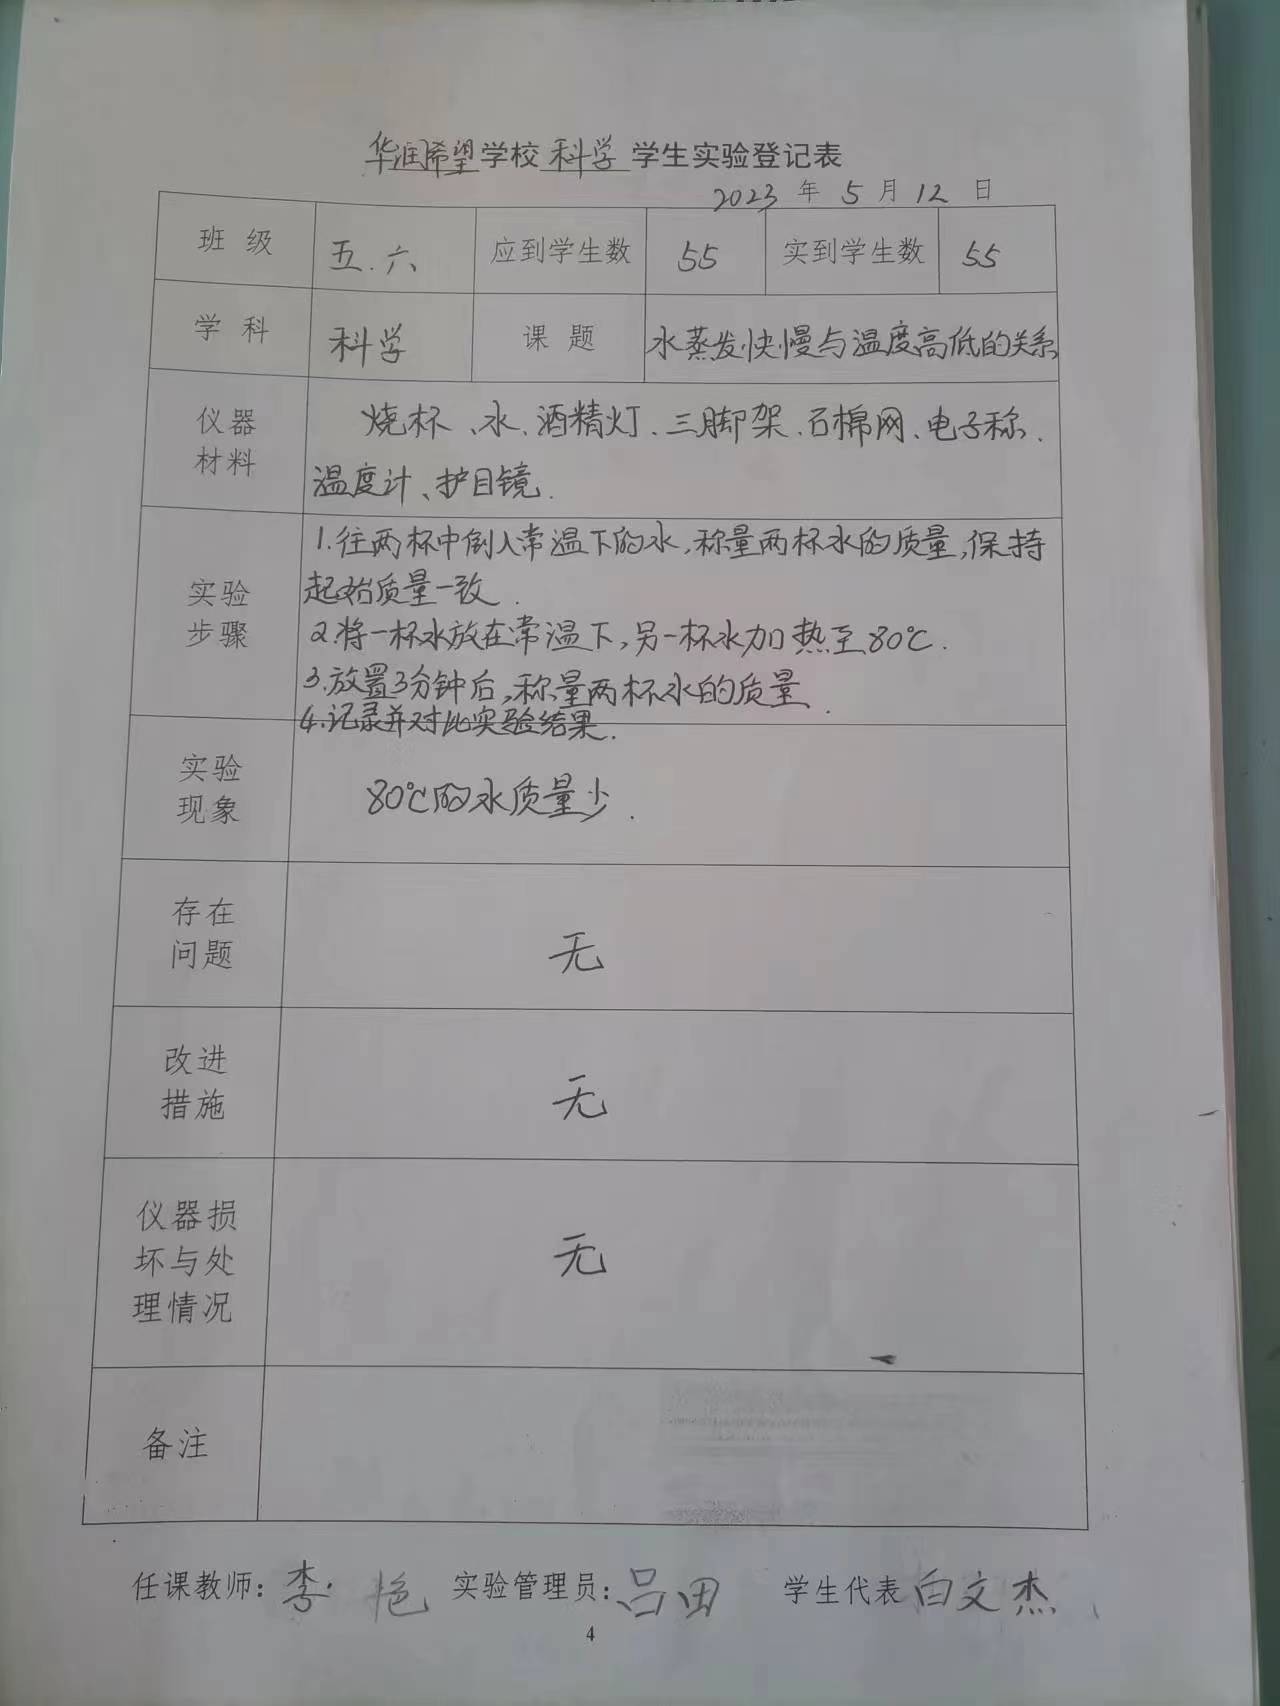 华润希望学校 科学 学生实验登记表
2023 年 5 月 12 日
班级 五.六 应到学生数 55 实到学生数 55
学科 科学 课题 水蒸发快慢与温度高低的关系
仪器 烧杯、水、酒精灯、三脚架、石棉网、电子称、
材料 温度计、护目镜.
1.往两杯中倒入常温下的水,称量两杯水的质量,保持
实验 起始质量一致.
步骤 2.将一杯水放在常温下,另一杯水加热至80℃.
3.放置3分钟后,称量两杯水的质量.
4.记录并对比实验结果.
实验
现象 80℃的水质量少.
存在
问题 无
改进
措施 无
仪器损
坏与处 无
理情况
备注
任课教师:李艳 实验管理员:吕田 学生代表 白文杰
4